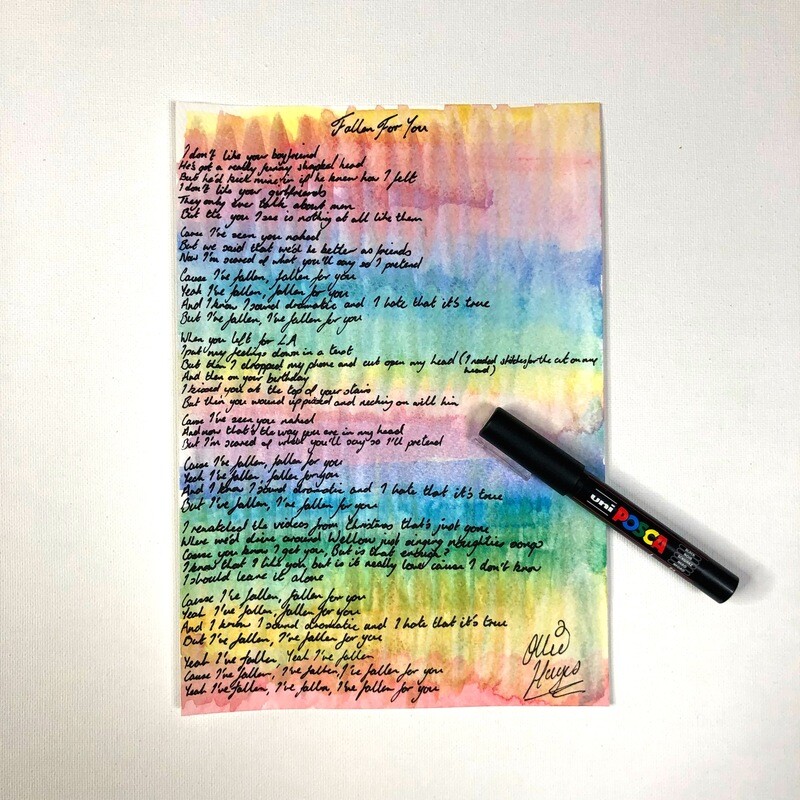 Fallen For You
I don't like your boyfriend
He's got a really funny shaped head
But he'd kick mine in if he knew how I felt
I don't like your girlfriends
They only ever talk about men
But the you I see is nothing at all like them
Cause I've seen you naked
But we said that we'd be better as friends
Now I'm scared of what you'll say so I pretend
Cause I've fallen, fallen for you
Yeah I've fallen, fallen for you
And I know I sound dramatic and I hate that it's true
But I've fallen, I've fallen for you
When you left for LA
I put my feelings down in a text
But then I dropped my phone and cut open my head (I needed stitches for the cut on my
head)
And then on your birthday
I kissed you at the top of your stairs
But then you wound up pissed and necking on with him
Cause I've seen you naked
And now that's the way you are in my head
But I'm scared of what you'll say so I'll pretend
Cause I've fallen, fallen for you
Yeah I've fallen, fallen for you
And I know I sound dramatic and I hate that it's true
But I've fallen, I've fallen for you
I rewatched the videos from Christmas that's just gone
Where we'd drive around Wellow just singing noughties songs
Cause you know I get you, But is that enough?
I know that I like you, but is it really love cause I don't know
I should leave it alone
Cause I've fallen, fallen for you
Yeah I've fallen, fallen for you
And I know I sound dramatic and I hate that it's true
But I've fallen, I've fallen for you
Yeah I've fallen, Yeah I've fallen
Cause I've fallen, I've fallen, I've fallen for you
Yeah I've fallen, I've fallen, I've fallen for you
Ollie
uni POSCA